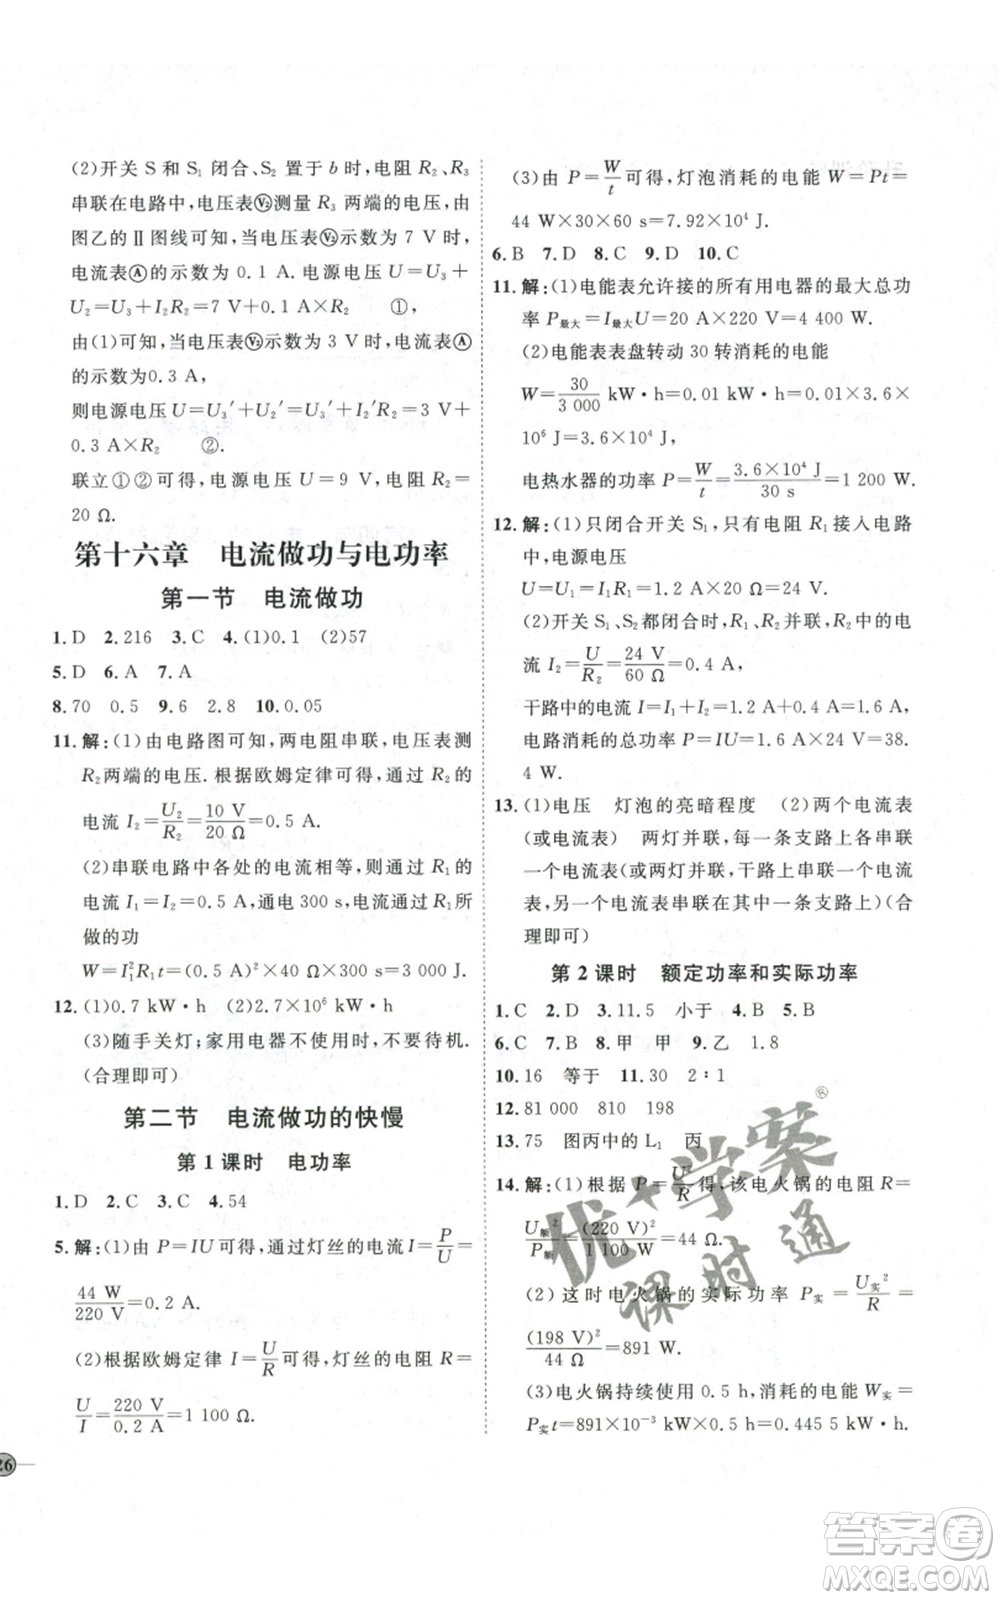 (2)开关 S 和 S₁ 闭合、S₂ 置于 b 时,电阻 R₂、R₃
串联在电路中,电压表Ⓥ₂测量 R₃ 两端的电压,由
图乙的 Ⅱ 图线可知,电压表Ⓥ₂示数为 7 V 时,
电流表Ⓐ的示数为 0.1 A. 电源电压 U=U₃+
U₂=U₃+I₂R₂=7 V+0.1 A×R₂ ①,
由(1)可知,当电压表Ⓥ₂示数为 3 V 时,电流表Ⓐ
的示数为0.3 A,
则电源电压 U=U₃′+U₂′=U₃′+I₂′R₂=3 V+
0.3 A×R₂ ②.
联立①②可得,电源电压 U=9 V,电阻 R₂=
20 Ω.
第十六章 电流做功与电功率
第一节 电流做功
1. D 2. 216 3. C 4. (1)0.1 (2)57
5. D 6. A 7. A
8. 70 0.5 9. 6 2.8 10. 0.05
11. 解:(1)由电路图可知,两电阻串联,电压表测
R₂ 两端的电压. 根据欧姆定律可得,通过 R₂ 的
电流 I₂=U₂/R₂=10 V/20 Ω=0.5 A.
(2)串联电路中各处的电流相等,则通过 R₁ 的
电流 I₁=I₂=0.5 A,通电300 s,电流通过 R₁ 所
做的功
W=I₁²R₁t=(0.5 A)²×40 Ω×300 s=3 000 J.
12. (1)0.7 kW·h (2)2.7×10⁶ kW·h
(3)随手关灯;家用电器不使用时,不要待机.
(合理即可)
第二节 电流做功的快慢
第 1 课时 电功率
1. D 2. C 3. C 4. 54
5. 解:(1)由 P=IU 可得,通过灯丝的电流 I=P/U=
44 W/220 V=0.2 A.
(2)根据欧姆定律 I=U/R可得,灯丝的电阻 R=
U/I=220 V/0.2 A=1 100 Ω.
26
(3)由 P=W/t可得,灯泡消耗的电能 W=Pt=
44 W×30×60 s=7.92×10⁴ J.
6. B 7. D 8. C 9. D 10. C
11. 解:(1)电能表允许接的所有用电器的最大总功
率 P最大=I最大U=20 A×220 V=4 400 W.
(2)电能表表盘转动 30 转消耗的电能
W=30/3 000 kW·h=0.01 kW·h=0.01×3.6×
10⁶ J=3.6×10⁴ J,
电热水器的功率 P=W/t=3.6×10⁴ J/30 s=1 200 W.
12. 解:(1)只闭合开关 S₁,只有电阻 R₁接入电路
中,电源电压
U=U₁=I₁R₁=1.2 A×20 Ω=24 V.
(2)开关 S₁、S₂ 都闭合时,R₁、R₂ 并联,R₂ 中的电
流 I₂=U/R₂=24 V/60 Ω=0.4 A,
干路中的电流 I=I₁+I₂=1.2 A+0.4 A=1.6 A,
电路消耗的总功率 P=IU=1.6 A×24 V=38.
4 W.
13. (1)电压 灯泡的亮暗程度 (2)两个电流表
(或电流表) 两灯并联,每一条支路上各串联
一个电流表(或两灯并联,干路上串联一个电流
表,另一个电流表串联在其中一条支路上)(合
理即可)
第 2 课时 额定功率和实际功率
1. C 2. D 3. 11.5 小于 4. B 5. B
6. C 7. B 8. 甲 甲 9. 乙 1.8
10. 16 等于 11. 30 2∶1
12. 81 000 810 198
13. 75 图丙中的 L₁ 丙
14. 解:(1)根据 P=U²/R可得,该电火锅的电阻 R=
U额²/P额=(220 V)²/1 100 W=44 Ω.
(2)这时电火锅的实际功率 P实=U实²/R=
(198 V)²/44 Ω=891 W.
(3)电火锅持续使用 0.5 h,消耗的电能 W实=
P实t=891×10⁻³ kW×0.5 h=0.445 5 kW·h.
优+学案®
课时通
答案卷
www.daanjuan.com